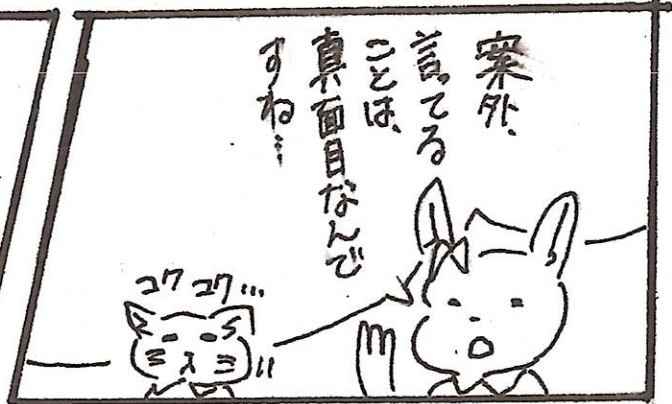 案外、
言ってる
ことは、
真面目なんで
すね…
コクコク…